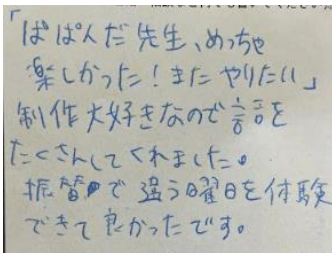 「ぱぱんだ先生、めっちゃ
楽しかった!またやりたい」
制作大好きなので言を
たくさんしてくれました。
振替で違う曜日を体験
できて良かったです。